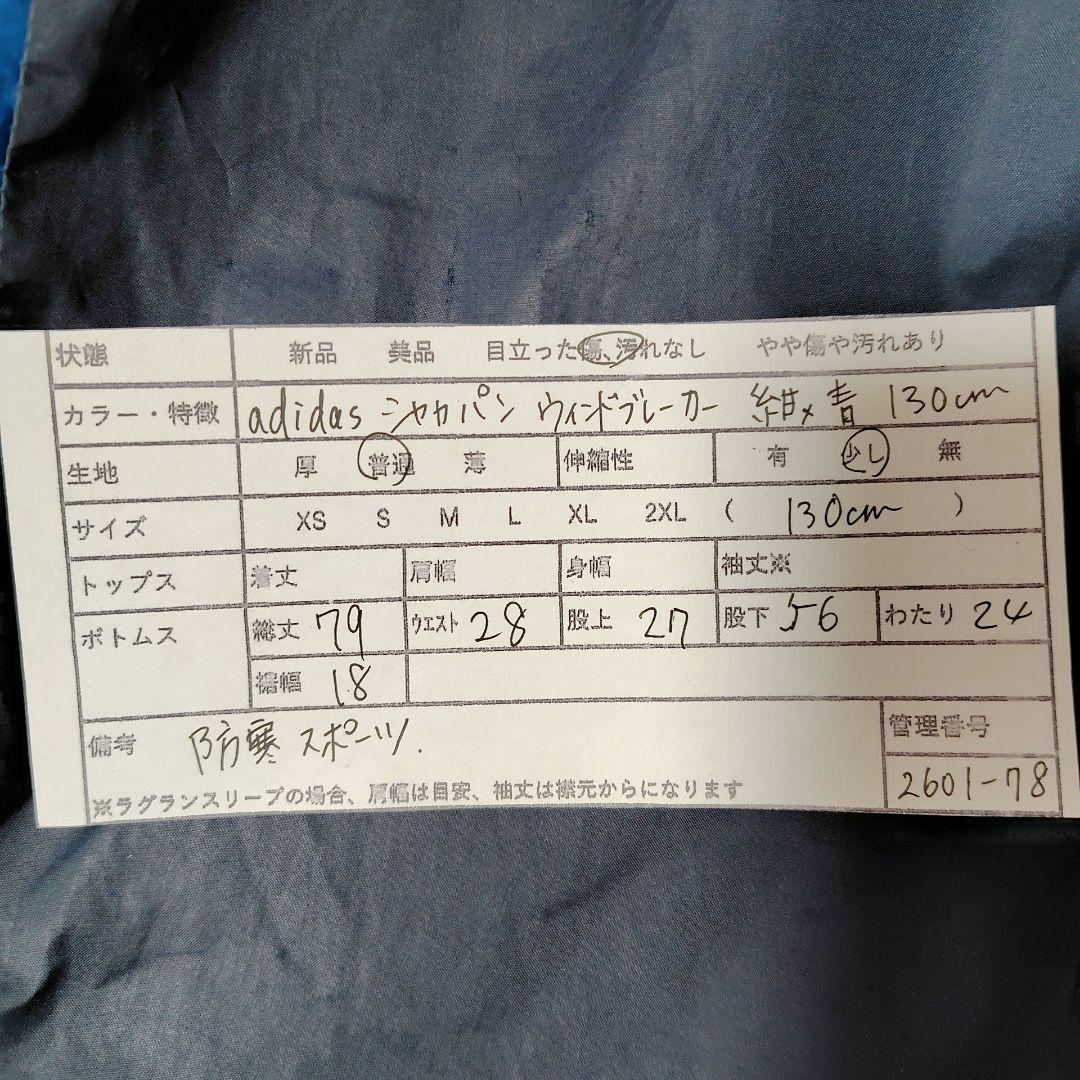 状態 新品 美品 目立った傷、汚れなし やや傷や汚れあり
カラー・特徴 adidas シャカパン ウィンドブレーカー 紺×青 130cm
生地 厚 普通 薄 伸縮性 有 少し 無
サイズ XS S M L XL 2XL ( 130cm )
トップス 着丈 肩幅 身幅 袖丈※
ボトムス 総丈 79 ウエスト 28 股上 27 股下 56 わたり 24
裾幅 18
備考 防寒 スポーツ. 管理番号
※ラグランスリーブの場合、肩幅は目安、袖丈は襟元からになります 2601-78